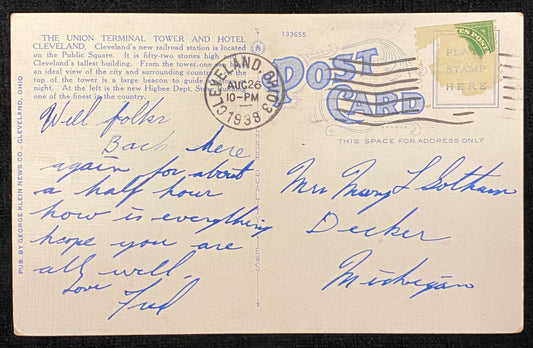 THE UNION TERMINAL TOWER AND HOTEL
CLEVELAND. Cleveland's new railroad station is located
on the Public Square. It is fifty-two stories high
Cleveland's tallest building. From the tower-one
an ideal view of the city and surrounding country.
top of the tower is a large beacon to guide
night. At the left is the new Higbee Dept. Store
one of the finest in the country.
133655
PUB. BY GEORGE KLEIN NEWS CO., CLEVELAND, OHIO
CLEVELAND, OHIO
AUG 26
10-PM
1938
POST
CARD
PLACE
STAMP
HERE
THIS SPACE FOR ADDRESS ONLY
Well folks
Back here
again for about
a half hour
how is everything
hope you are
all well.
Love
Fred
Mrs Mary L Gotham
Decker
Michigan